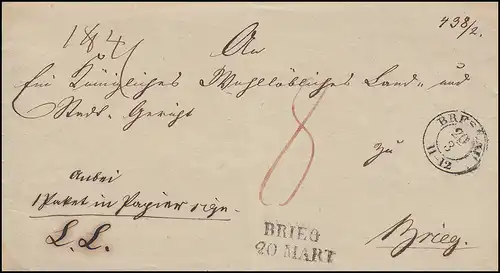 438/2.
An
Ein Königliches Wohllöbliches Land- und
Stadt-Gericht
zu
BRESLAU
20
3
11-12
8
Anbei
1 Paket in Papier sign.
L. L.
BRIEG
20 MART
Brieg.